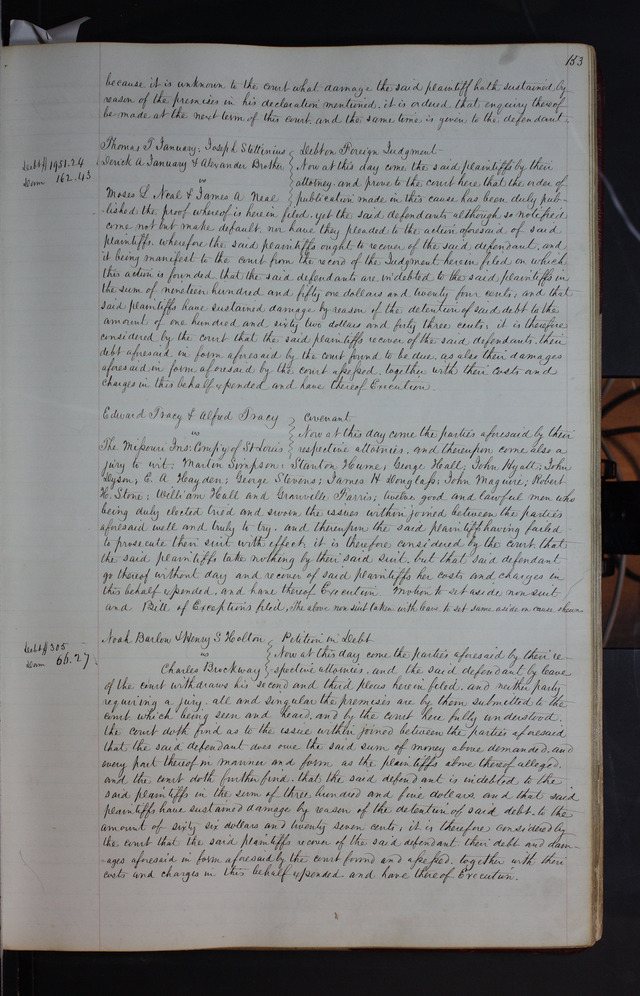 153
because it is unknown to the court what damage the said plaintiff hath sustained by
reason of the premises in his declaration mentioned, it is ordered that enquiry thereof
be made at the next term of this court, and the same time is given to the defendant.
Thomas T January, Joseph Stettinius Debt on Foreign Judgment
Debt $1951.24 Derick A January & Alexander Brother Now at this day come the said plaintiffs by their
Dam 162.43 vs attorney and prove to the court here that the order of
Moses L Neal & James A Neal publication made in this cause has been duly pub-
lished the proof whereof is herein filed, yet the said defendants although so notified
come not but make default, nor have they pleaded to the action aforesaid of said
plaintiffs, wherefore the said plaintiffs ought to recover of the said defendant, and
it being manifest to the court from the record of the Judgment herein filed on which
this action is founded, that the said defendants are indebted to the said plaintiffs in
the sum of nineteen hundred and fifty one dollars and twenty four cents, and that
said plaintiffs have sustained damage by reason of the detention of said debt to the
amount of one hundred and sixty two dollars and forty three cents, it is therefore
considered by the court that the said plaintiffs recover of the said defendants, their
debt aforesaid in form aforesaid by the court found to be due, as also their damages
aforesaid in form aforesaid by the court assessed, together with their costs and
charges in this behalf expended and have thereof Execution.
Edward Tracy & Alfred Tracy Covenant
vs Now at this day come the parties aforesaid by their
The Missouri Ins: Comp'y of St Louis respective attornies, and thereupon come also a
jury to wit: Martin Simpson; Stanton Hume; George Heall; John Hyatt; John
Dyson; E. A Hayden; George Stevens; James H Douglass; John Maguire; Robert
H. Stone; William Hall and Granville Farris; twelve good and lawful men who
being duly elected tried and sworn the issues within joined between the parties
aforesaid well and truly to try, and thereupon the said plaintiff having failed
to prosecute their suit with effect, it is therefore considered by the court, that
the said plaintiffs take nothing by their said suit, but that said defendant
go thereof without day and recover of said plaintiffs her costs and charges in
this behalf expended, and have thereof Execution. Motion to set aside non suit
and Bill of Exceptions filed, The above non suit taken with leave to set same aside on cause shewn
Debt $305 Noah Barlow & Henry S Holton Petition in Debt
Dam 66.27 vs Now at this day come the parties aforesaid by their re-
Charles Brockway spective attornies, and the said defendant by leave
of the court withdraws his second and third pleas herein filed, and neither party
requiring a jury, all and singular the premises are by them submitted to the
court which being seen and heard, and by the court here fully understood,
the court doth find as to the issue within joined between the parties aforesaid
that the said defendant does owe the said sum of money above demanded, and
every part thereof in manner and form as the plaintiffs above thereof alleged,
and the court doth further find, that the said defendant is indebted to the
said plaintiffs in the sum of three hundred and five dollars, and that said
plaintiffs have sustained damage by reason of the detention of said debt, to the
amount of sixty six dollars and twenty seven cents, it is therefore considered by
the court that the said plaintiffs recover of the said defendant their debt and dam-
ages aforesaid in form aforesaid by the court found and assessed, together with their
costs and charges in this behalf expended, and have thereof Execution.